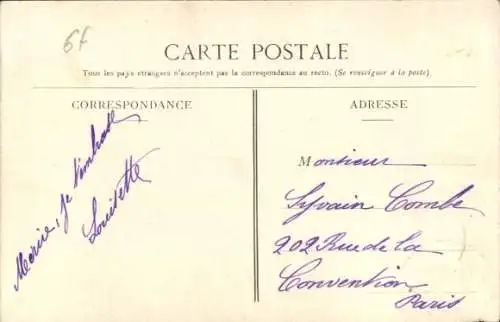 6f
CARTE POSTALE
Tous les pays étrangers n'acceptent pas la correspondance au recto. (Se renseigner à la poste).
CORRESPONDANCE
ADRESSE
Merci, je t'embrasse
Louisette
Monsieur
Sylvain Combe
202 Rue de la
Convention
Paris